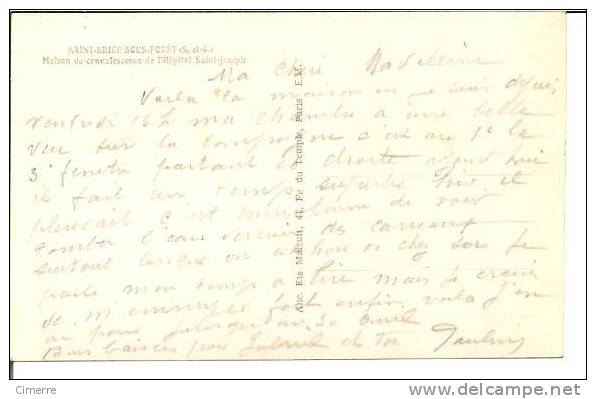 SAINT-BRICE SOUS-FORÊT (S.-et-O.)
Maison de convalescence de l'Hôpital Saint-Joseph
Ma Chère Madeleine
Voila la maison ou je suis depuis
vendredi 16 ma chambre a une belle
vue sur la campagne c est au 1e la
3e fenetre partant de droite aujourd hui
il fait un temps superbe hier il
pleurait c est monotone de voir
tomber l eau derriere des carreaux
surtout lorsque on est hors de chez soi je
passe mon temps a lire mais je crains
de m ennuyer fort enfin voila j en
ai pour jusqu au 30 avril
Bons baisers pour Gabriel et toi
Anc. Ets Malcuit, 41, Fg du Temple, Paris E.M.
Cimerre
delcampe.net